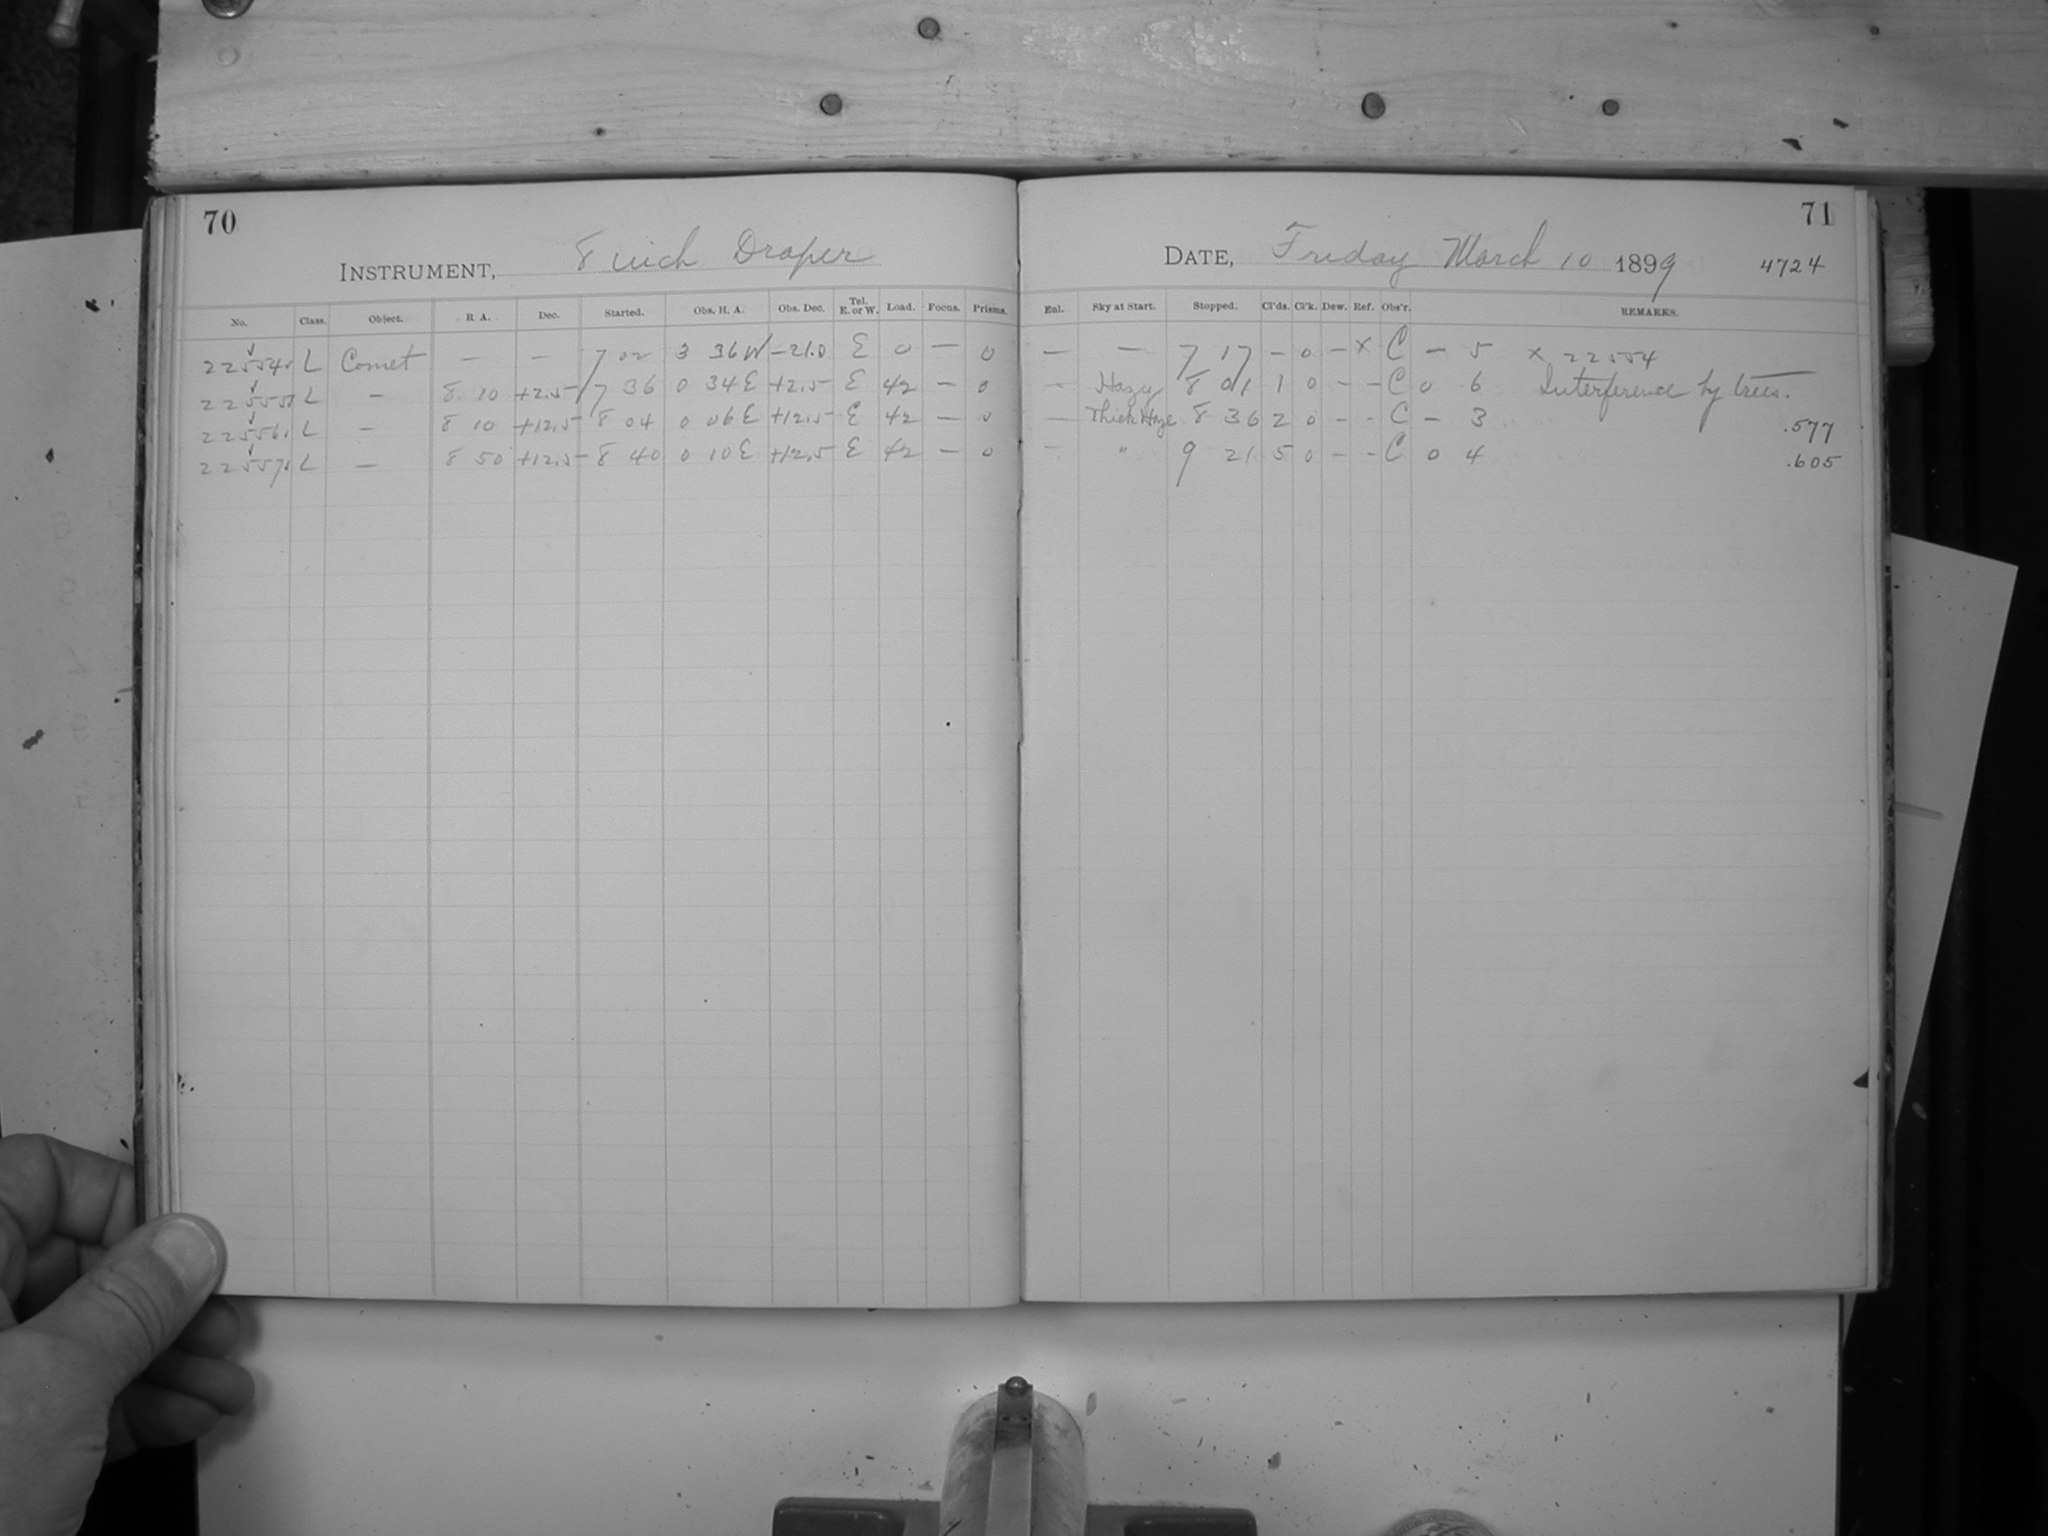 70
INSTRUMENT, 8 inch Draper
No. Class. Object. R A. Dec. Started. Obs. H. A. Obs. Dec. Tel. E. or W. Load. Focus. Prisms.
22554 L Comet — — 7 02 3 36 W -21.0 E 0 — 0
22555 L — 8 10 +2.5 7 36 0 34 E +2.5 E 42 — 0
22556 L — 8 10 +12.5 8 04 0 06 E +12.5 E 42 — 0
22557 L — 8 50 +12.5 8 40 0 10 E +12.5 E 42 — 0
71
DATE, Friday March 10 1899 4724
Enl. Sky at Start. Stopped. Cl'ds. Cl'k. Dew. Ref. Obs'r. REMARKS.
— — 7 17 - 0 - x C - 5 x 22554
— Hazy 8 01 1 0 - - C 0 6 Interference by trees.
— Thick Haze 8 36 2 0 - - C - 3 .577
— " 9 21 5 0 - - C 0 4 .605